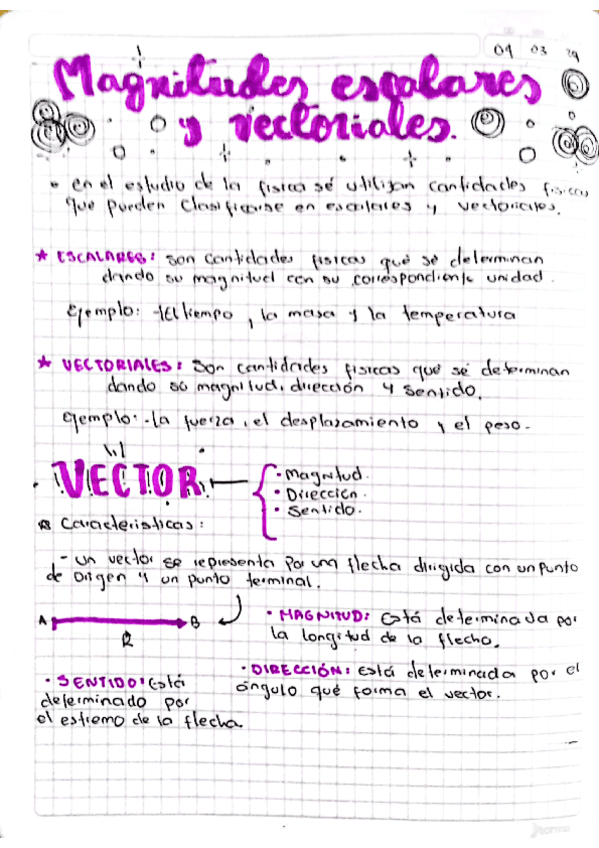 04 03 24
Magnitudes escalares
y vectoriales.
- en el estudio de la fisica sé utilizan cantidades fisicas
que pueden clasificarse en escalares y vectoriales.
* ESCALARES: son cantidades fisicas qué sé determinan
dando su magnitud con su correspondiente unidad.
Ejemplo: -El tiempo, la masa y la temperatura
* VECTORIALES: Son cantidades fisicas qué sé determinan
dando so magnitud, dirección y sentido.
Ejemplo: -La fuerza, el desplazamiento y el peso.
VECTOR
· Magnitud.
· Dirección.
· Sentido.
Caracteristicas:
- un vector se representa por una flecha dirigida con un punto
de origen y un punto terminal.
A B
R
· MAGNITUD: Está determinada por
la longitud de la flecha.
· SENTIDO: Está
determinado por
el estremo de la flecha.
· DIRECCIÓN: Está determinada por el
ángulo qué forma el vector.
norma